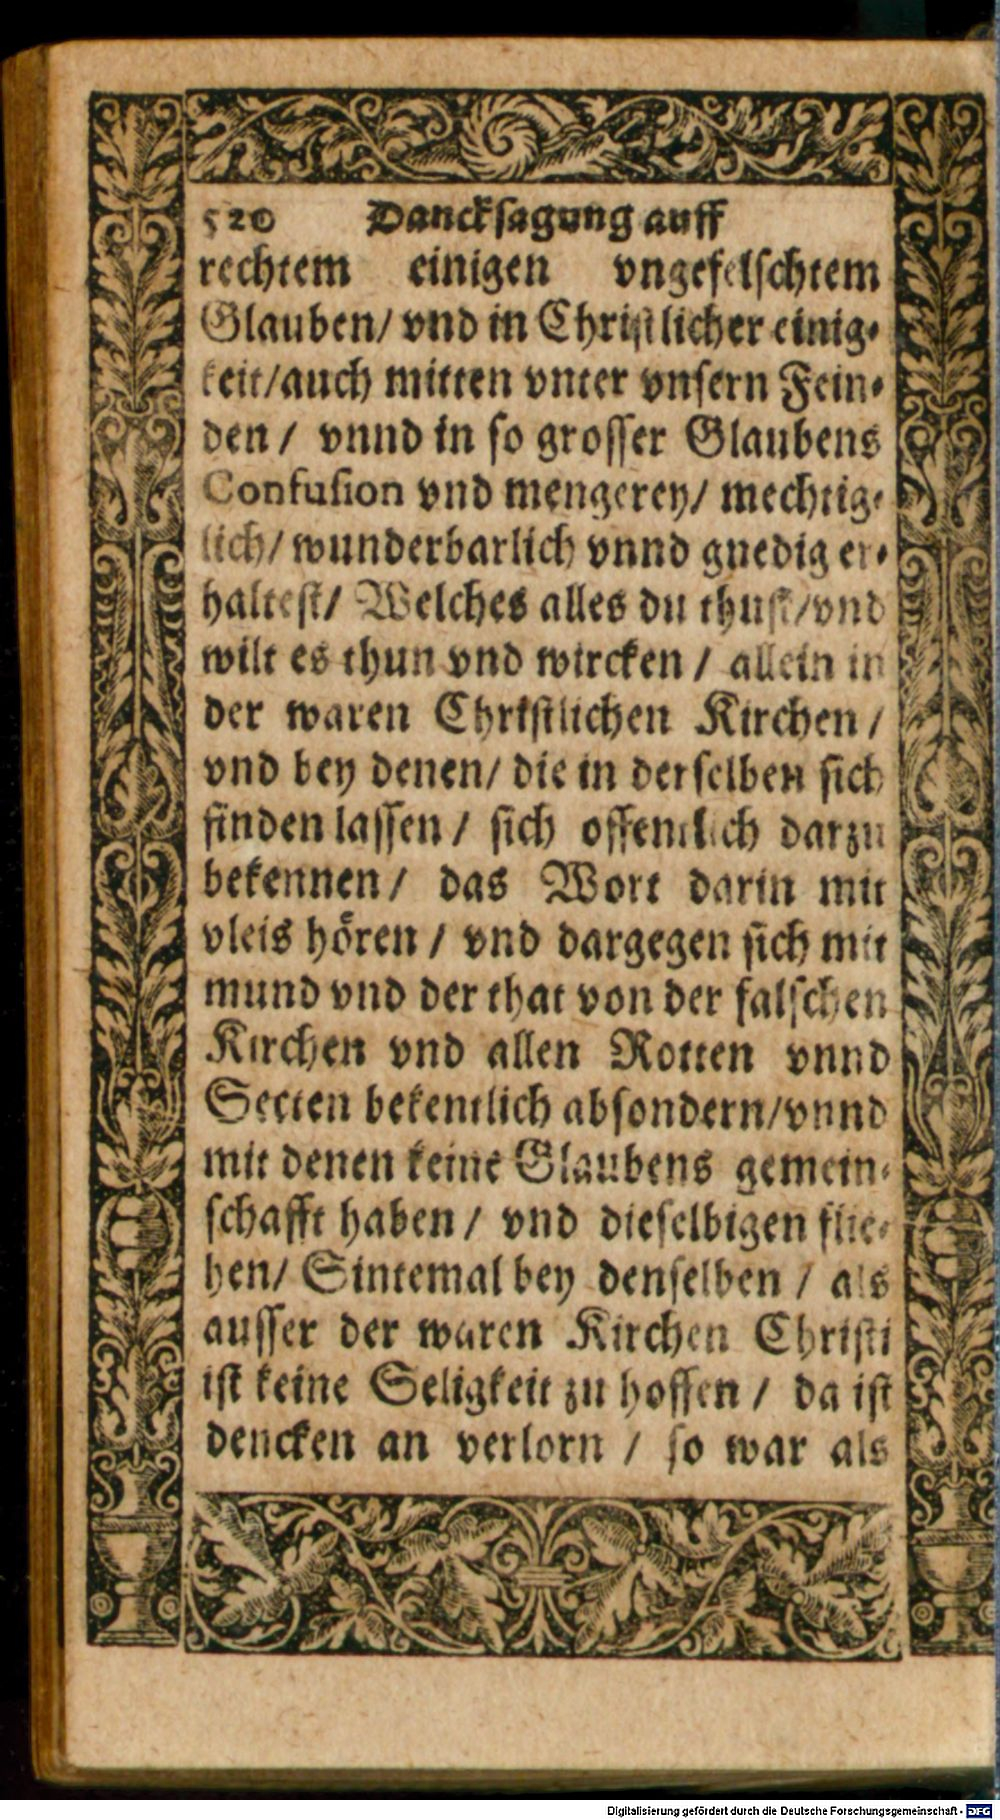 520 Dancksagung auff
rechtem einigen vngefelschtem
Glauben/ vnd in Christlicher einig⸗
keit/auch mitten vnter vnsern Fein⸗
den / vnnd in so grosser Glaubens
Confusion vnd mengerey/ mechtig⸗
lich/ wunderbarlich vnnd gnedig er⸗
haltest/ Welches alles du thust/vnd
wilt es thun vnd wircken / allein in
der waren Christlichen Kirchen /
vnd bey denen/ die in derselben sich
finden lassen / sich offentlich darzu
bekennen / das Wort darin mit
vleis hören / vnd dargegen sich mit
mund vnd der that von der falschen
Kirchen vnd allen Rotten vnnd
Secten bekentlich absondern/vnnd
mit denen keine Glaubens gemein⸗
schafft haben / vnd dieselbigen flie⸗
hen/ Sintemal bey denselben / als
ausser der waren Kirchen Christi
ist keine Seligkeit zu hoffen / da ist
dencken an verlorn / so war als
Digitalisierung gefördert durch die Deutsche Forschungsgemeinschaft - DFG